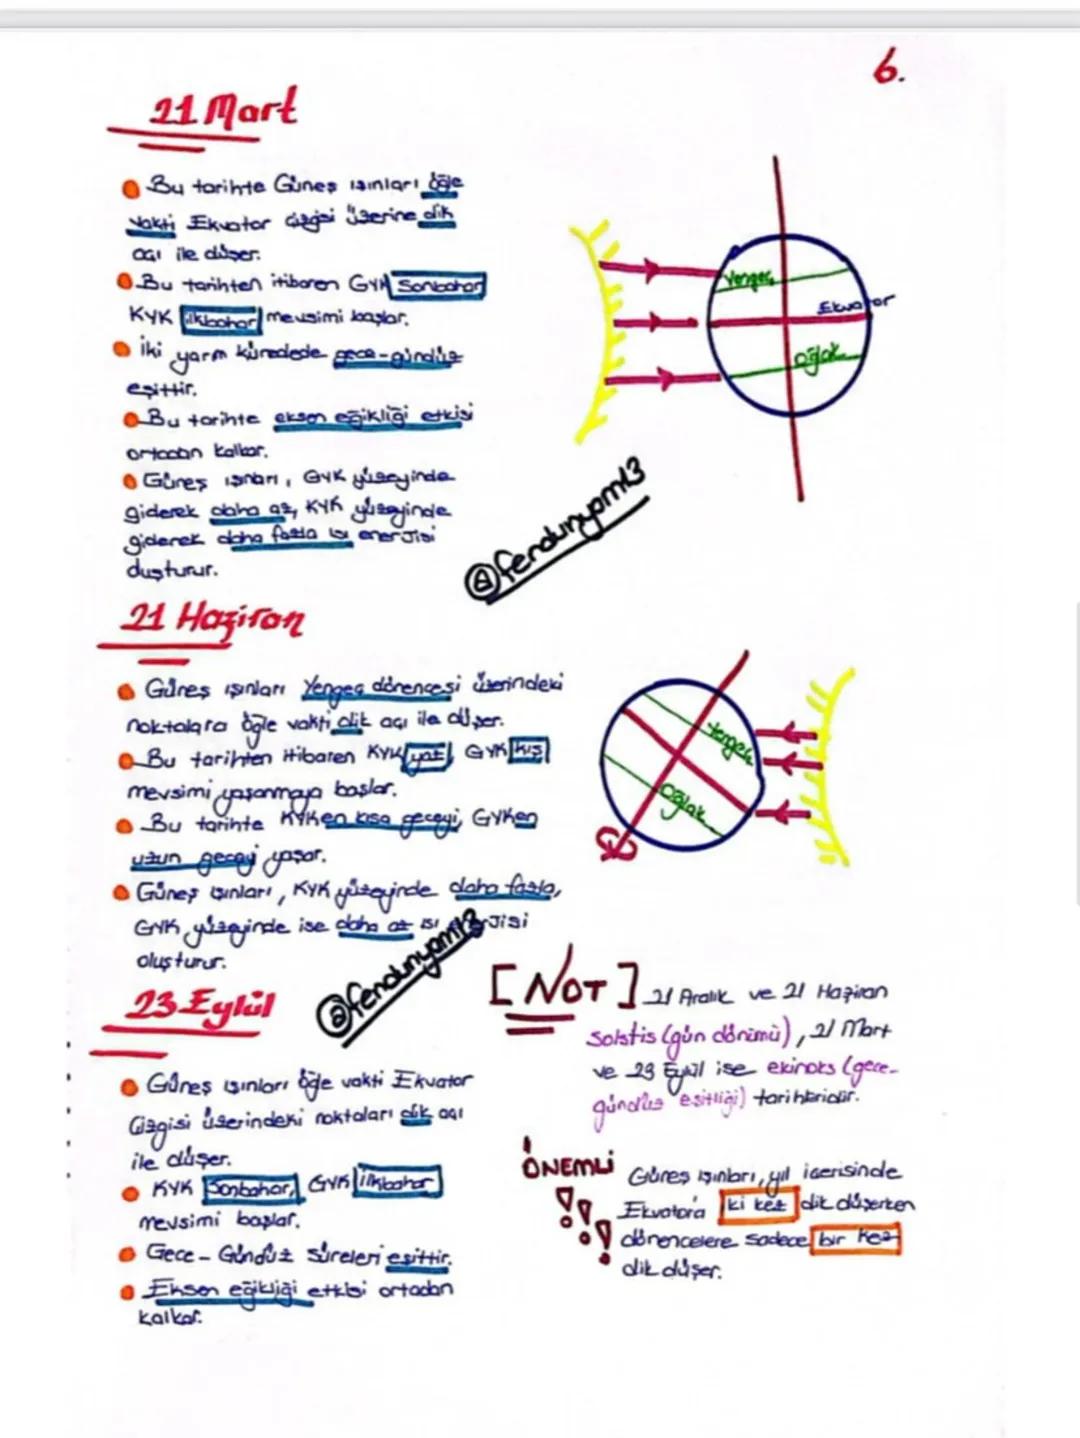 6.
21 Mart
Bu tarihte Güneş ışınları öğle
vakti Ekvator çizgisi üzerine dik
açı ile düşer.
Bu tarihten itibaren GYK Sonbahar
KYK ilkbahar mevsimi başlar.
İki yarım küredede gece-gündüz
eşittir.
Bu tarihte eksen eğikliği etkisi
ortadan kalkar.
Güneş ışınları, GYK yüzeyinde
giderek daha az, KYK yüzeyinde
giderek daha fazla ısı enerjisi
duşturur.
Yengeç
Ekvator
Oğlak
@fendunyam13
21 Haziran
Güneş ışınları Yengeç dönencesi üzerindeki
noktalara öğle vakti dik açı ile düşer.
Bu tarihten itibaren KYK yaz, GYK kış
mevsimi yaşanmaya başlar.
Bu tarihte KYKen kısa geceyi, GYKen
uzun geceyi yaşar.
Güneş ışınları, KYK yüzeyinde daha fazla,
GYK yüzeyinde ise daha az ısı enerjisi
oluşturur.
Yengeç
Oğlak
@fendunyam13
23 Eylül
Güneş ışınları öğle vakti Ekvator
Çizgisi üzerindeki noktaları dik açı
ile düşer.
KYK Sonbahar, GYK ilkbahar
mevsimi başlar.
Gece-Gündüz süreleri eşittir.
Eksen eğikliği etkisi ortadan
kalkar.
[NOT] 21 Aralık ve 21 Haziran
solstis (gün dönümü), 21 Mart
ve 23 Eylül ise ekinoks (gece-
gündüz eşitliği) tarihleridir.
ÖNEMLİ !!! Güneş ışınları, yıl içerisinde
Ekvatora iki kez dik düşerken
dönencelere sadece bir kez
dik düşer.